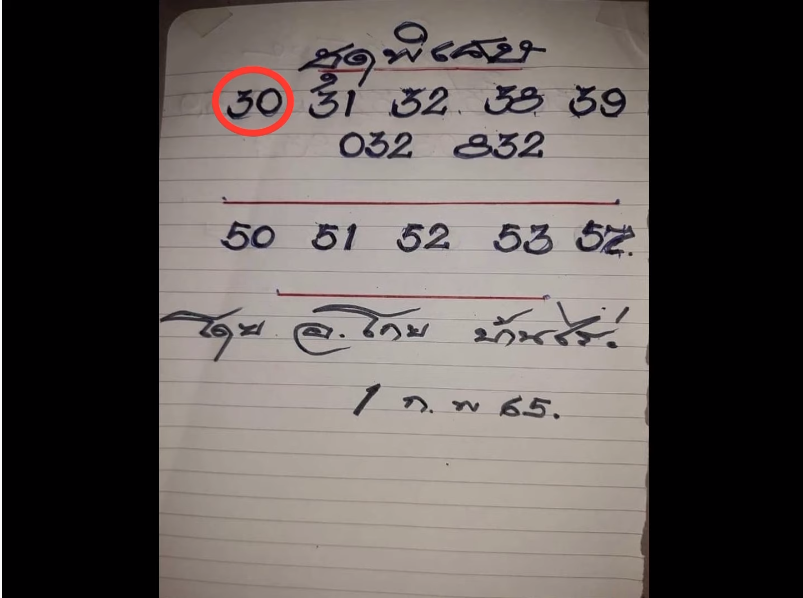 ชุดพิเศษ
30 31 32 38 39
032 832
50 51 52 53 57.
โดย อ.โกย บ้านไร่.
1 ก.พ 65.